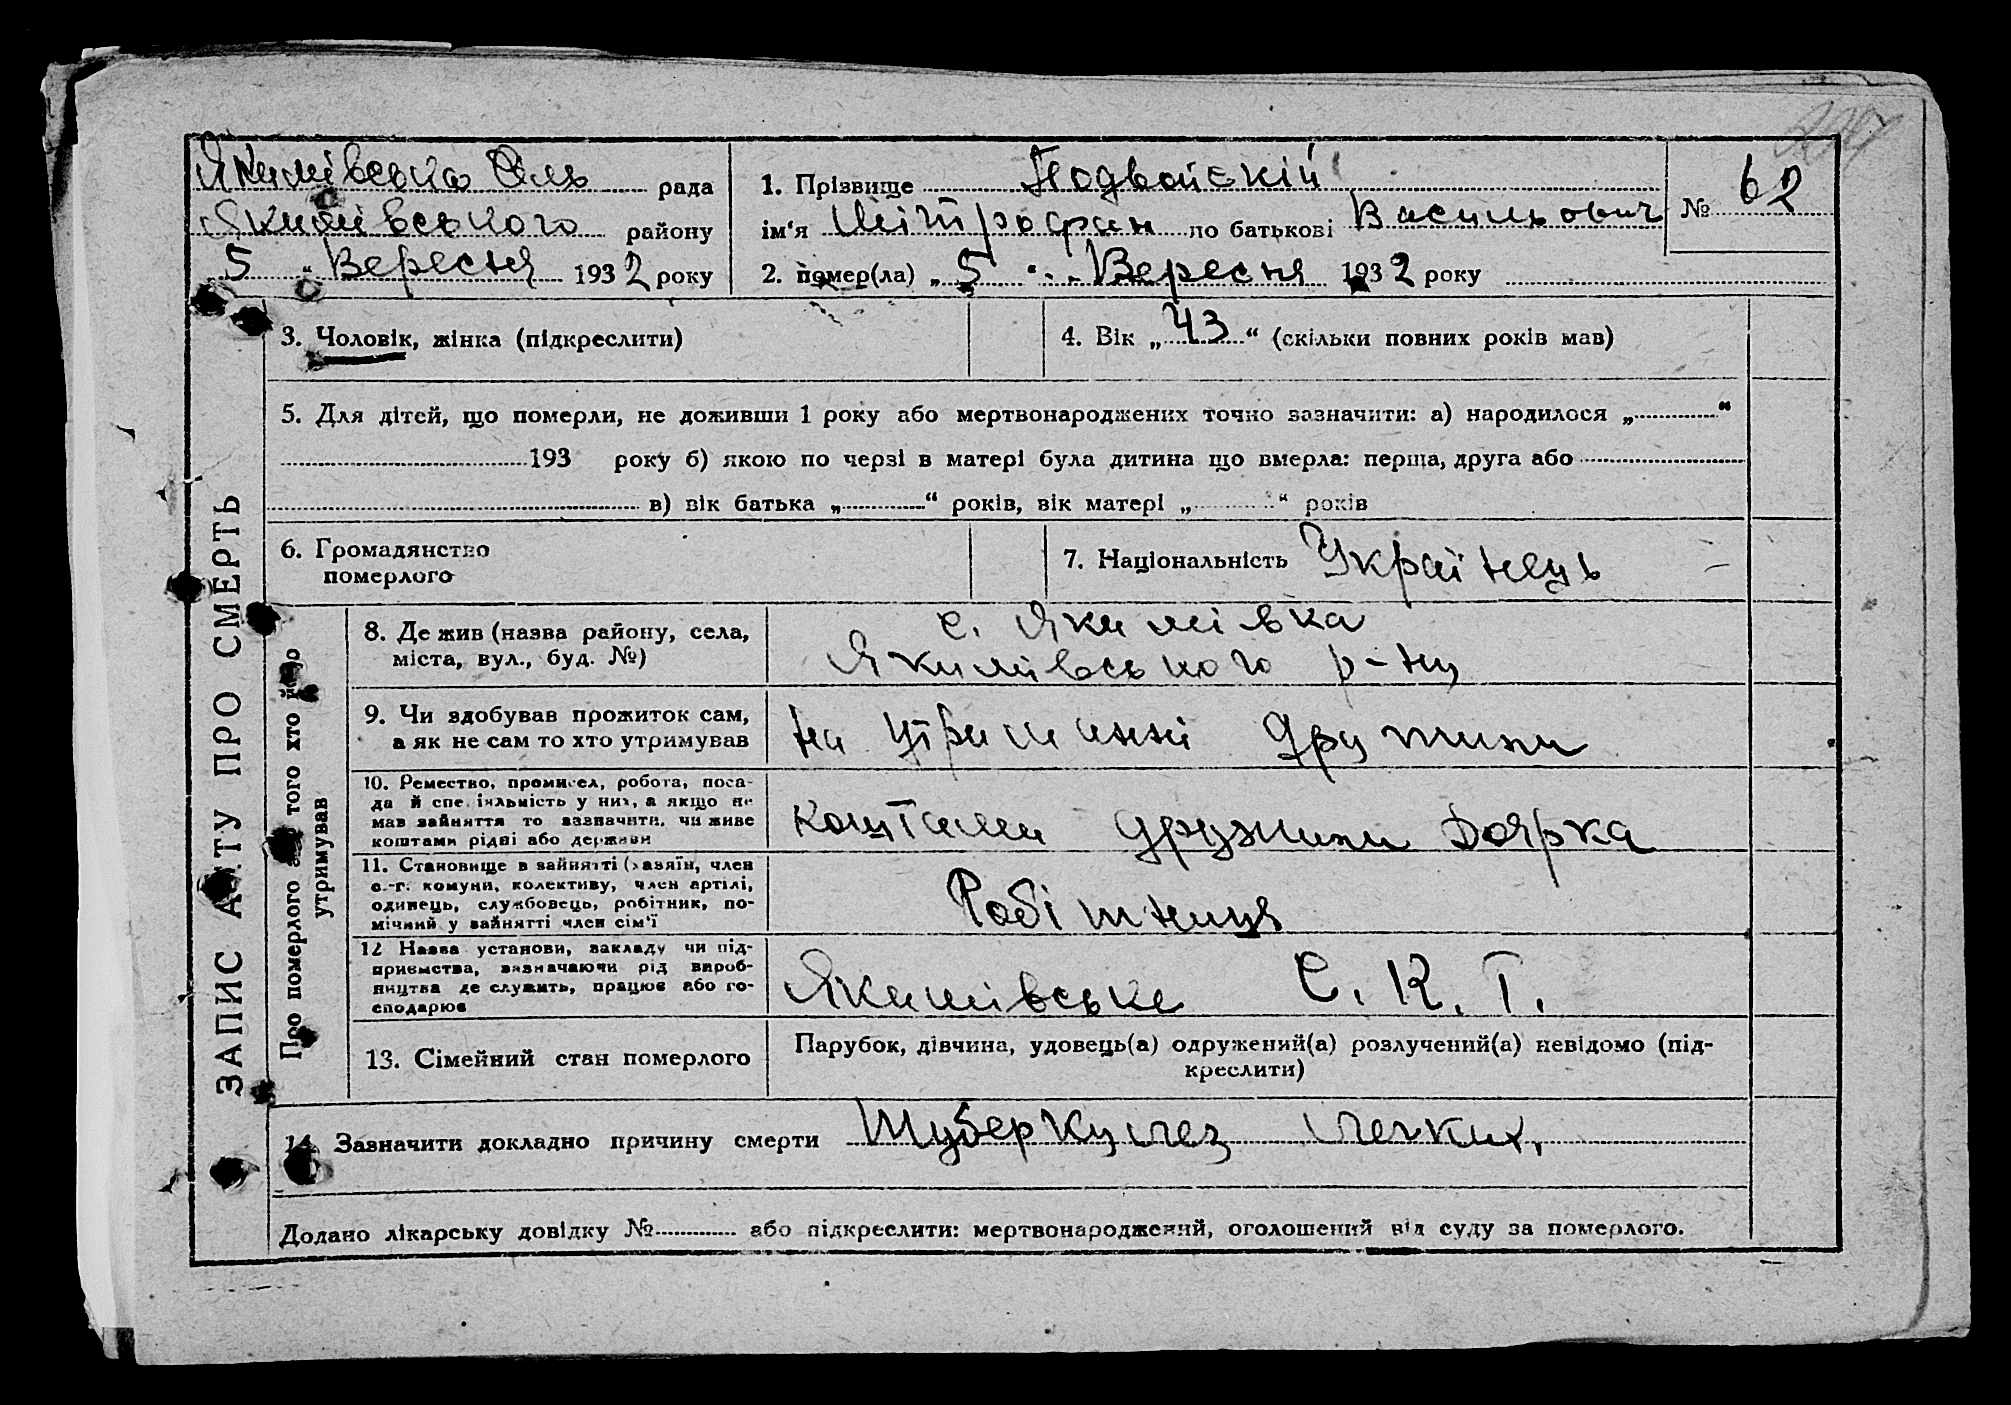 Якимівська Сіль рада
Якимівського району
„ 5 “ Вересня 1932 року
1. Прізвище Подвойскій
ім'я Мітрофан по батькові Васильович
№ 62
2. помер(ла) „ 5 “ Вересня 1932 року
3. Чоловік, жінка (підкреслити)
4. Вік „ 43 “ (скільки повних років мав)
5. Для дітей, що померли, не доживши 1 року або мертвонароджених точно зазначити: а) народилося „ “
193 року б) якою по черзі в матері була дитина що вмерла: перша, друга або
в) вік батька „ “ років, вік матері „ “ років
6. Громадянство
померлого
7. Національність Українець
ЗАПИС АКТУ ПРО СМЕРТЬ
Про померлого того хто
утримував
8. Де жив (назва району, села,
міста, вул., буд. №)
с. Якимівка
Якимівського р-ну
9. Чи здобував прожиток сам,
а як не сам то хто утримував
на утриманні дружини
10. Ремество, промисел, робота, поса-
да й спеціяльність у них, а якщо не
мав зайняття то зазначити, чи живе
коштами рідні або держави
коштами дружини Доярка
11. Становище в зайнятті (хазяїн, член
с.-г. комуни, колективу, член артілі,
одинець, службовець, робітник, по-
мічний у зайнятті член сім'ї
Робітниця
12 Назва установи, закладу чи під-
приємства, зазначаючи рід вироб-
ництва де служить, працює або го-
сподарює
Якимівське С. К. Г.
13. Сімейний стан померлого
Парубок, дівчина, удовець(а) одружений(а) розлучений(а) невідомо (під-
креслити)
14. Зазначити докладно причину смерти Туберкульоз легких.
Додано лікарську довідку № або підкреслити: мертвонароджений, оголошений від суду за померлого.